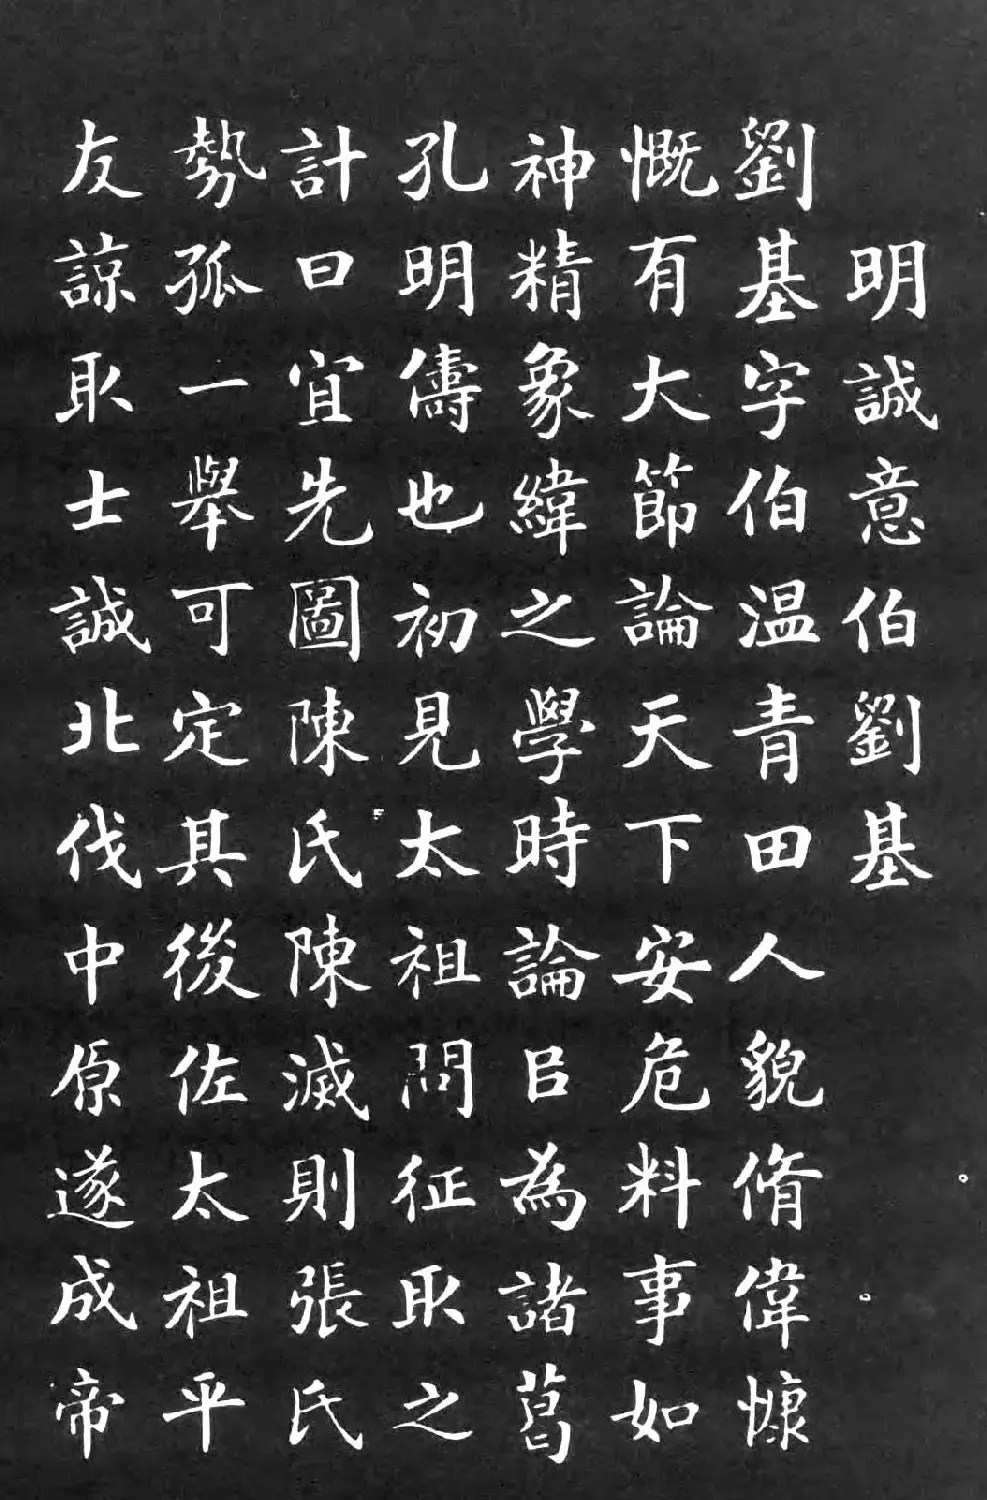 明誠意伯劉基
劉基字伯温青田人貌脩偉慷
慨有大節論天下安危料事如
神精象緯之學時論㠯為諸葛
孔明儔也初見太祖問征取之
計曰宜先圖陳氏陳滅則張氏
勢孤一舉可定其後佐太祖平
友諒取士誠北伐中原遂成帝